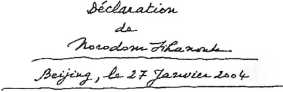 Déclaration
de
Norodom Sihanouk
Beijing, le 27 Janvier 2004